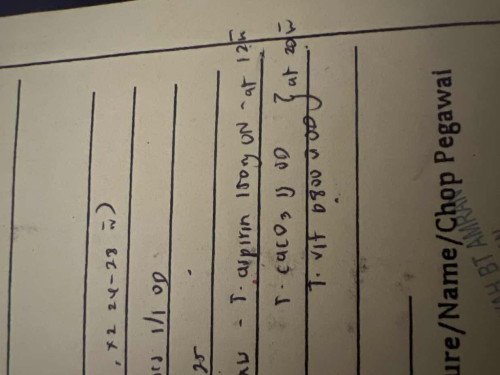 , x2 24-28 w̄)
1/1 OD
25
- T. aspirin 150mg ON - at 12w̄
T. CaCO3 1g OD } at 20w̄
T. Vit D 800 u OD
ure/Name/Chop Pegawai
BT AMRAN